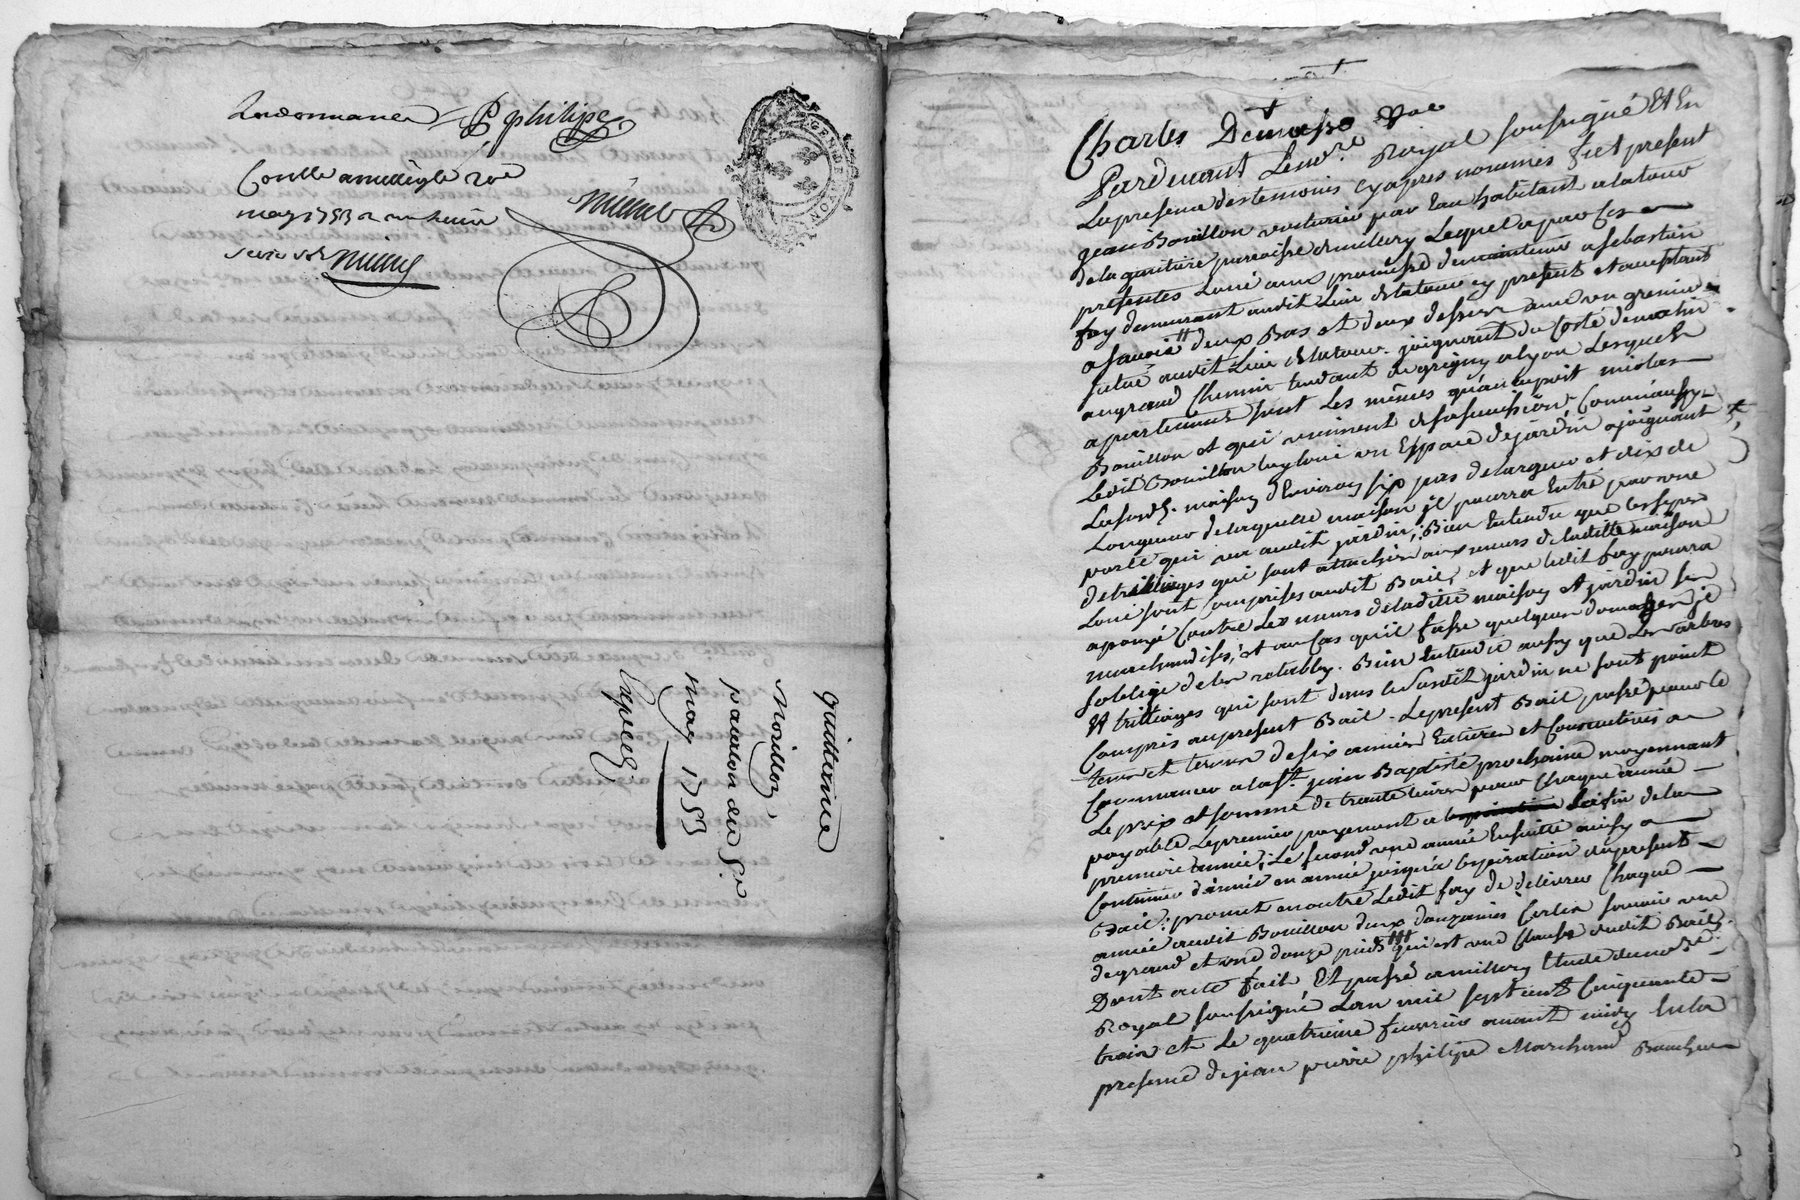 Philipe
Conlle
may 1753
GEN DE LYON
quittance
Morillon
patardon du Sr
may 1753
Expediée
Charles
Pardevant Le nore Royal soussigné Et En
La presence des temoins cyapres nommés fut present
jean Bouillon voiturier par Eau habitant a la tour
de la paroisse de millery Lequel a par ces
presentes Loué avec promesse de maintenir a sebastien
fay demeurant audit Lieu de la tour cy present et acceptant
a savoir deux Bas et deux dessus avec un grenier
situé audit Lieu de la tour joignant du costé de matin
au grand Chemin tendant de grigny a lyon Lesquels
apartements sont Les mêmes qu'an nicolas
Bouillon et qui viennent de sa succession Comm'aussy
Ledit Bouillon luy loue un Espace de jardin a joignant
La susd. maison d'Environ six pas de largeur et dix de
Longueur de laquelle maison jl pourra Entré par une
porte qui va audit jardin, Bien Entendu que les seps
de trilliages qui sont attachés aux murs de laditte maison
Loué sont comprises audit Bail, et que ledit fay pourra
aposé Contre Les murs de laditte maison et jardin ses
marchandises, et au Cas qu'il fasse quelques domages je
s'oblige de les retablir. Bien Entendu aussy que Les arbres
Et trilliages qui sont dans le susdit jardin ne sont point
Compris au present Bail. Le present Bail passé pour le
tems et terme de six années Entieres et Consecutives a
Commancer a la st. jean Baptiste prochaine moyennant
Le prix et somme de trante livres pour Chaque année
payable Le premier payement a La fin de la
premiere année, Le second une année Ensuitte ainsy a
Continuer d'année en année jusqu'a l'expiration du present
Bail; promet en outre Ledit fay de délivrer Chaque
année audit Bouillon deux douzaines Cercles savoir une
de grand et une douze pieds qui est une Clause dudit Bail.
Dont acte fait Et passé a millery Etude du nore
Royal soussigné L'an mil sept cent Cinquante
trois et Le quatrieme fevrier avant midy En la
presence de jean pierre philipe Marchand Boucher